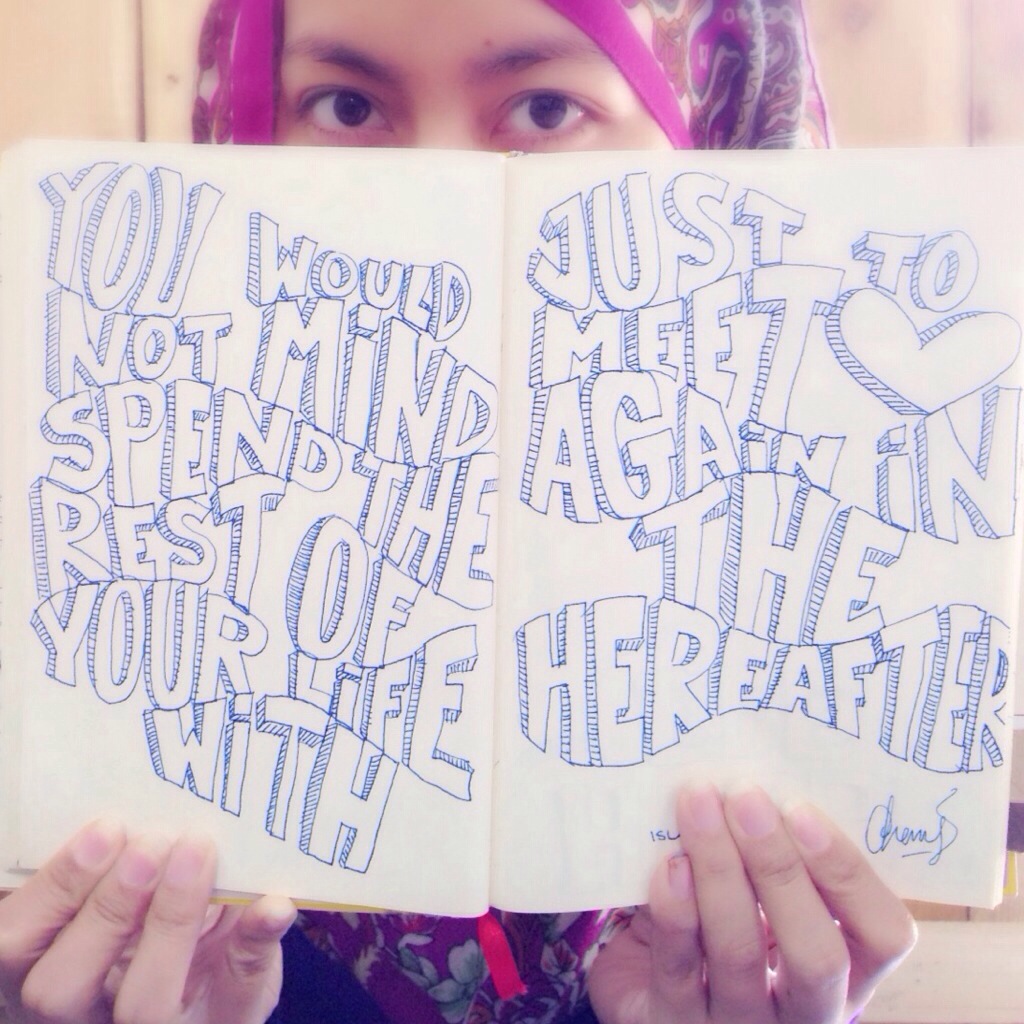 YOU WOULD
NOT MiND
SPEND THE
REST OF
YOUR LiFE
WiTH
JUST TO
MEET
AGAiN iN
THE
HEREAFTER